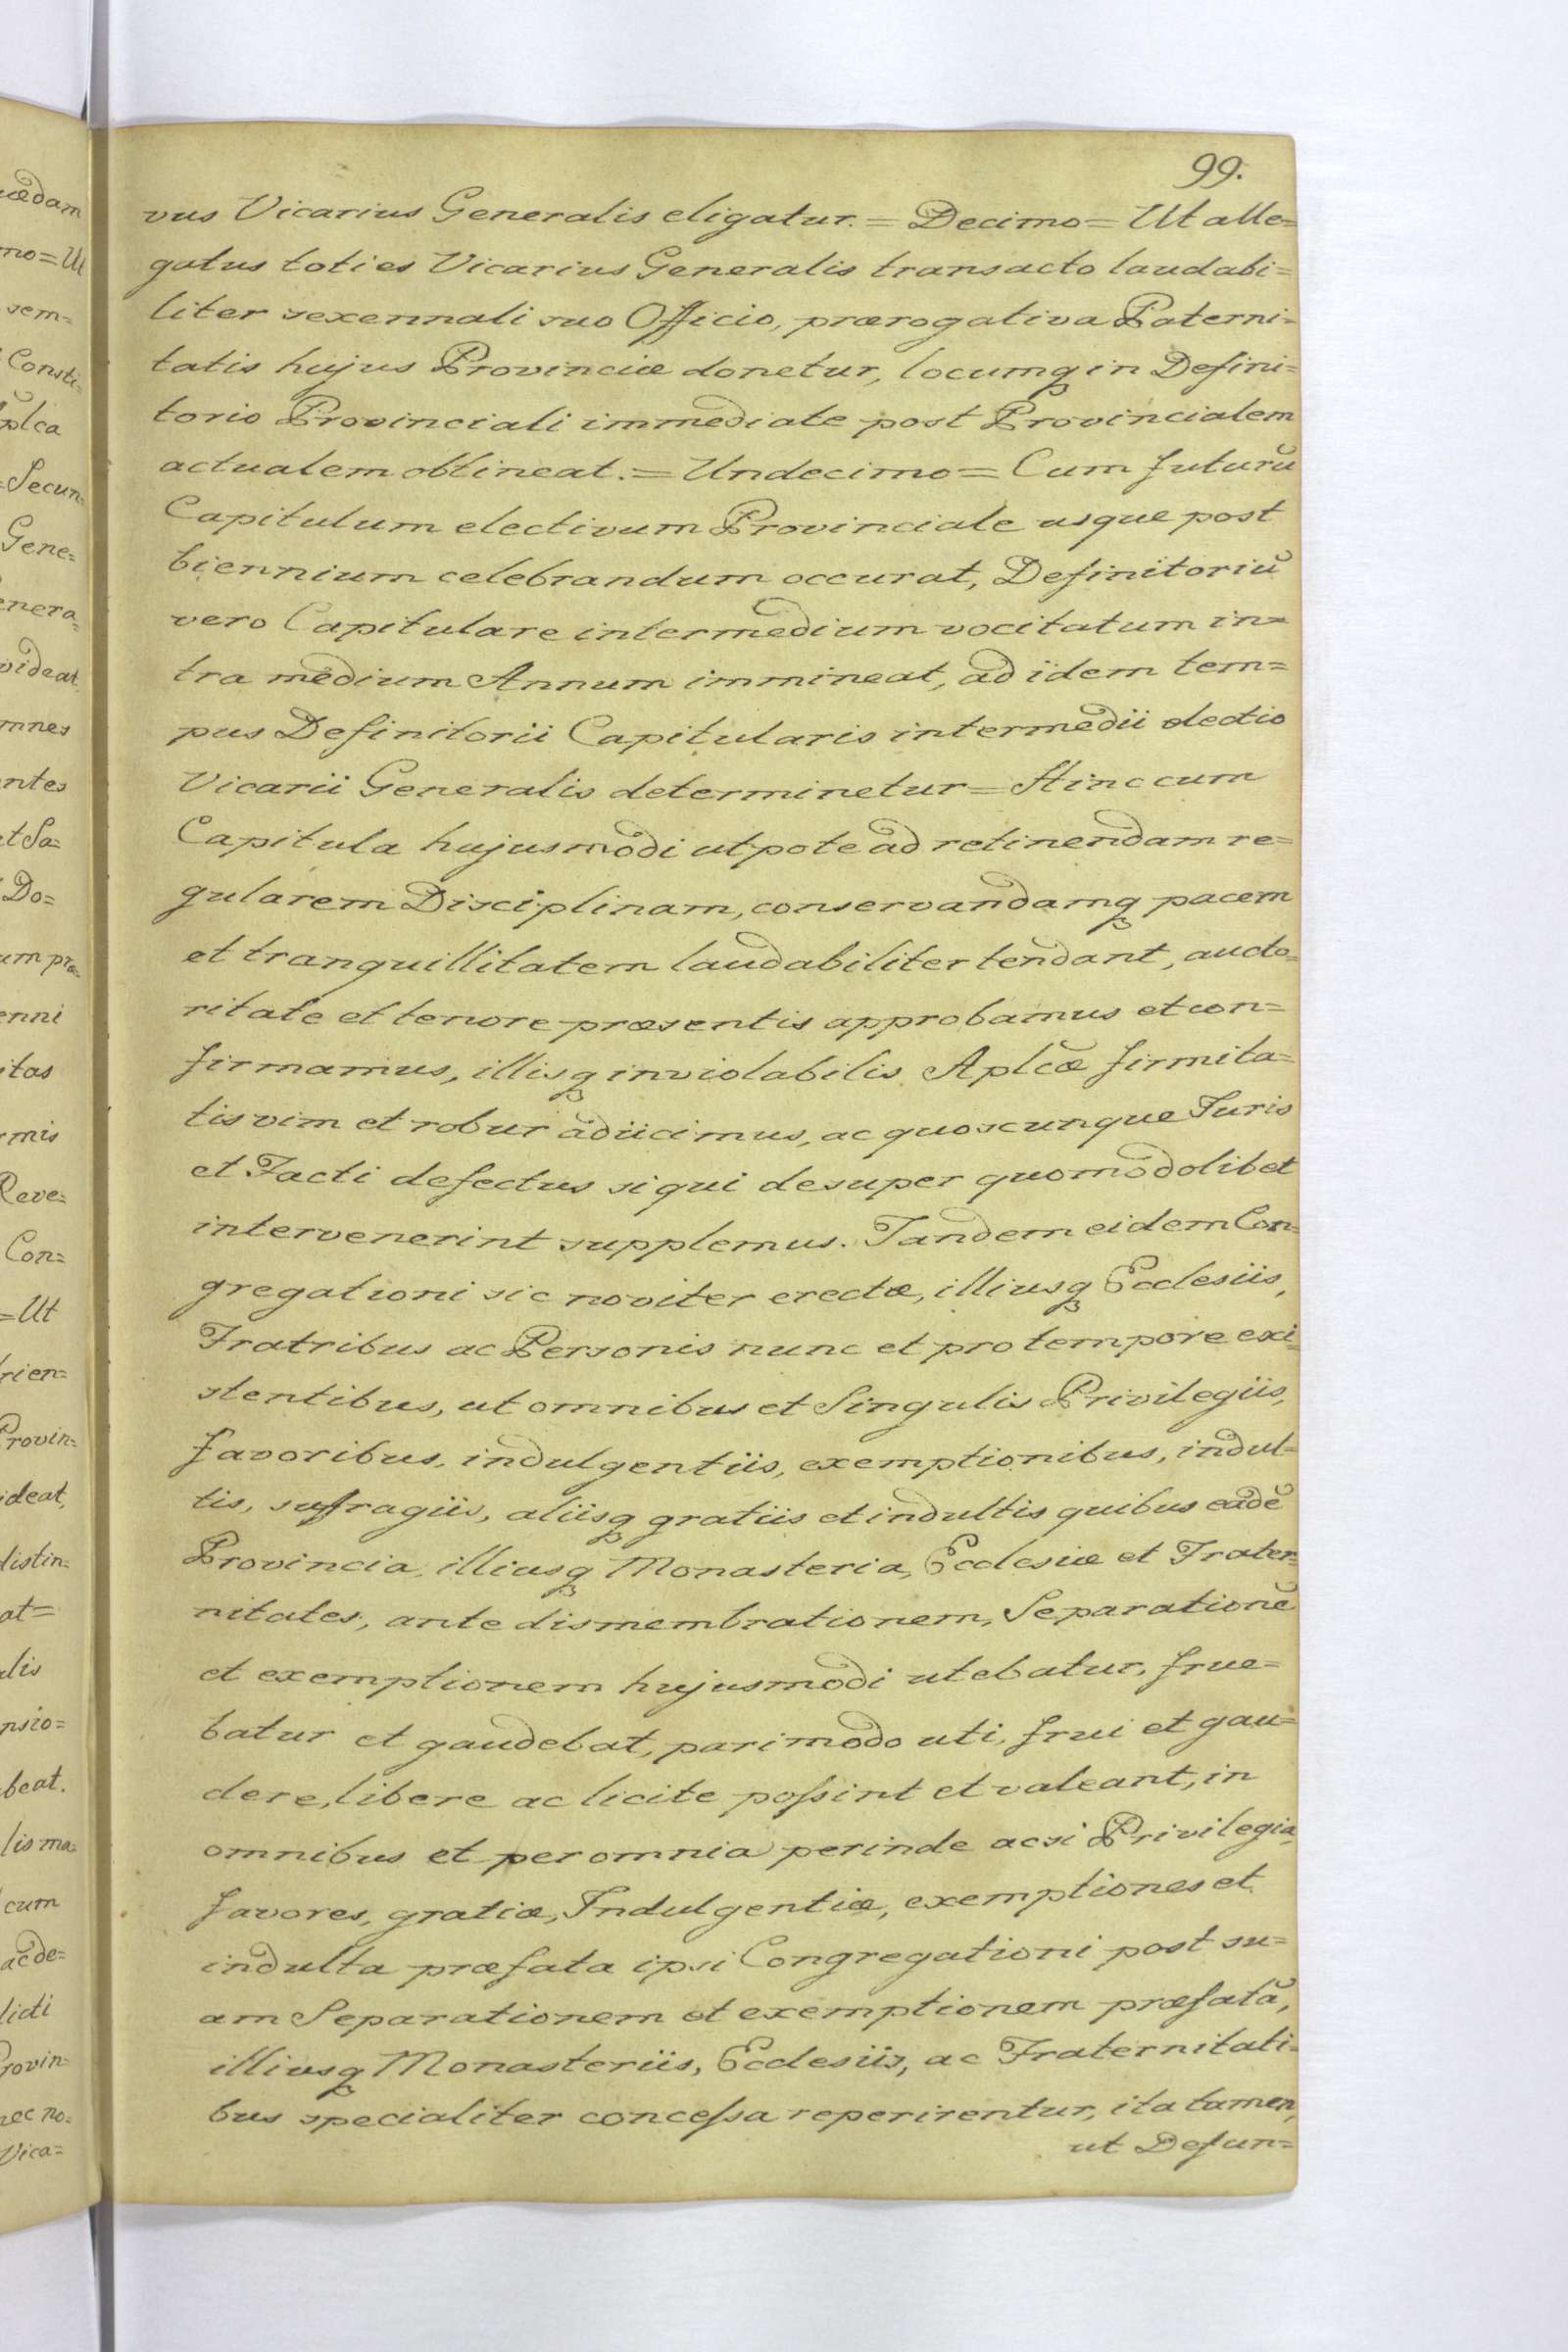 99.
vus Vicarius Generalis eligatur. = Decimo = Ut alle=
gatus toties Vicarius Generalis transacto laudabi=
liter sexennali suo Officio, prærogativa Paterni=
tatis hujus Provinciæ donetur, locumq in Defini=
torio Provinciali immediate post Provincialem
actualem obtineat. = Undecimo = Cum futurũ
Capitulum electivum Provinciale usque post
biennium celebrandum occurat, Definitoriũ
vero Capitulare intermedium vocitatum in=
tra medium Annum immineat, ad idem tem=
pus Definitorii Capitularis intermedii electio
Vicarii Generalis determinetur = Hinc cum
Capitula hujusmodi utpote ad retinendam re=
gularem Disciplinam, conservandamq pacem
et tranquillitatem laudabiliter tendant, aucto=
ritate et tenore præsentis approbamus et con=
firmamus, illisq inviolabilis Aplcæ firmita=
tis vim et robur adiicimus, ac quoscunque Juris
et Facti defectus siqui desuper quomodolibet
intervenerint supplemus. Tandem eidem Con=
gregationi sic noviter erectæ, illiusq Ecclesiis,
Fratribus ac Personis nunc et pro tempore exi=
stentibus, ut omnibus et Singulis Privilegiis,
favoribus, indulgentiis, exemptionibus, indul=
tis, suffragiis, aliisq gratiis et indultis quibus eadẽ
Provincia, illiusq Monasteria, Ecclesiæ et Frater=
nitates, ante dismembrationem, Separationẽ
et exemptionem hujusmodi utebatur, frue=
batur et gaudebat, pari modo uti, frui et gau=
dere, libere ac licite poſsint et valeant, in
omnibus et per omnia perinde acsi Privilegia,
favores, gratiæ, Indulgentiæ, exemptiones et
indulta præfata ipsi Congregationi post su=
am Separationem et exemptionem præfatã,
illiusq Monasteriis, Ecclesiis, ac Fraternitati=
bus specialiter conceſsa reperirentur, ita tamen,
ut Defun=